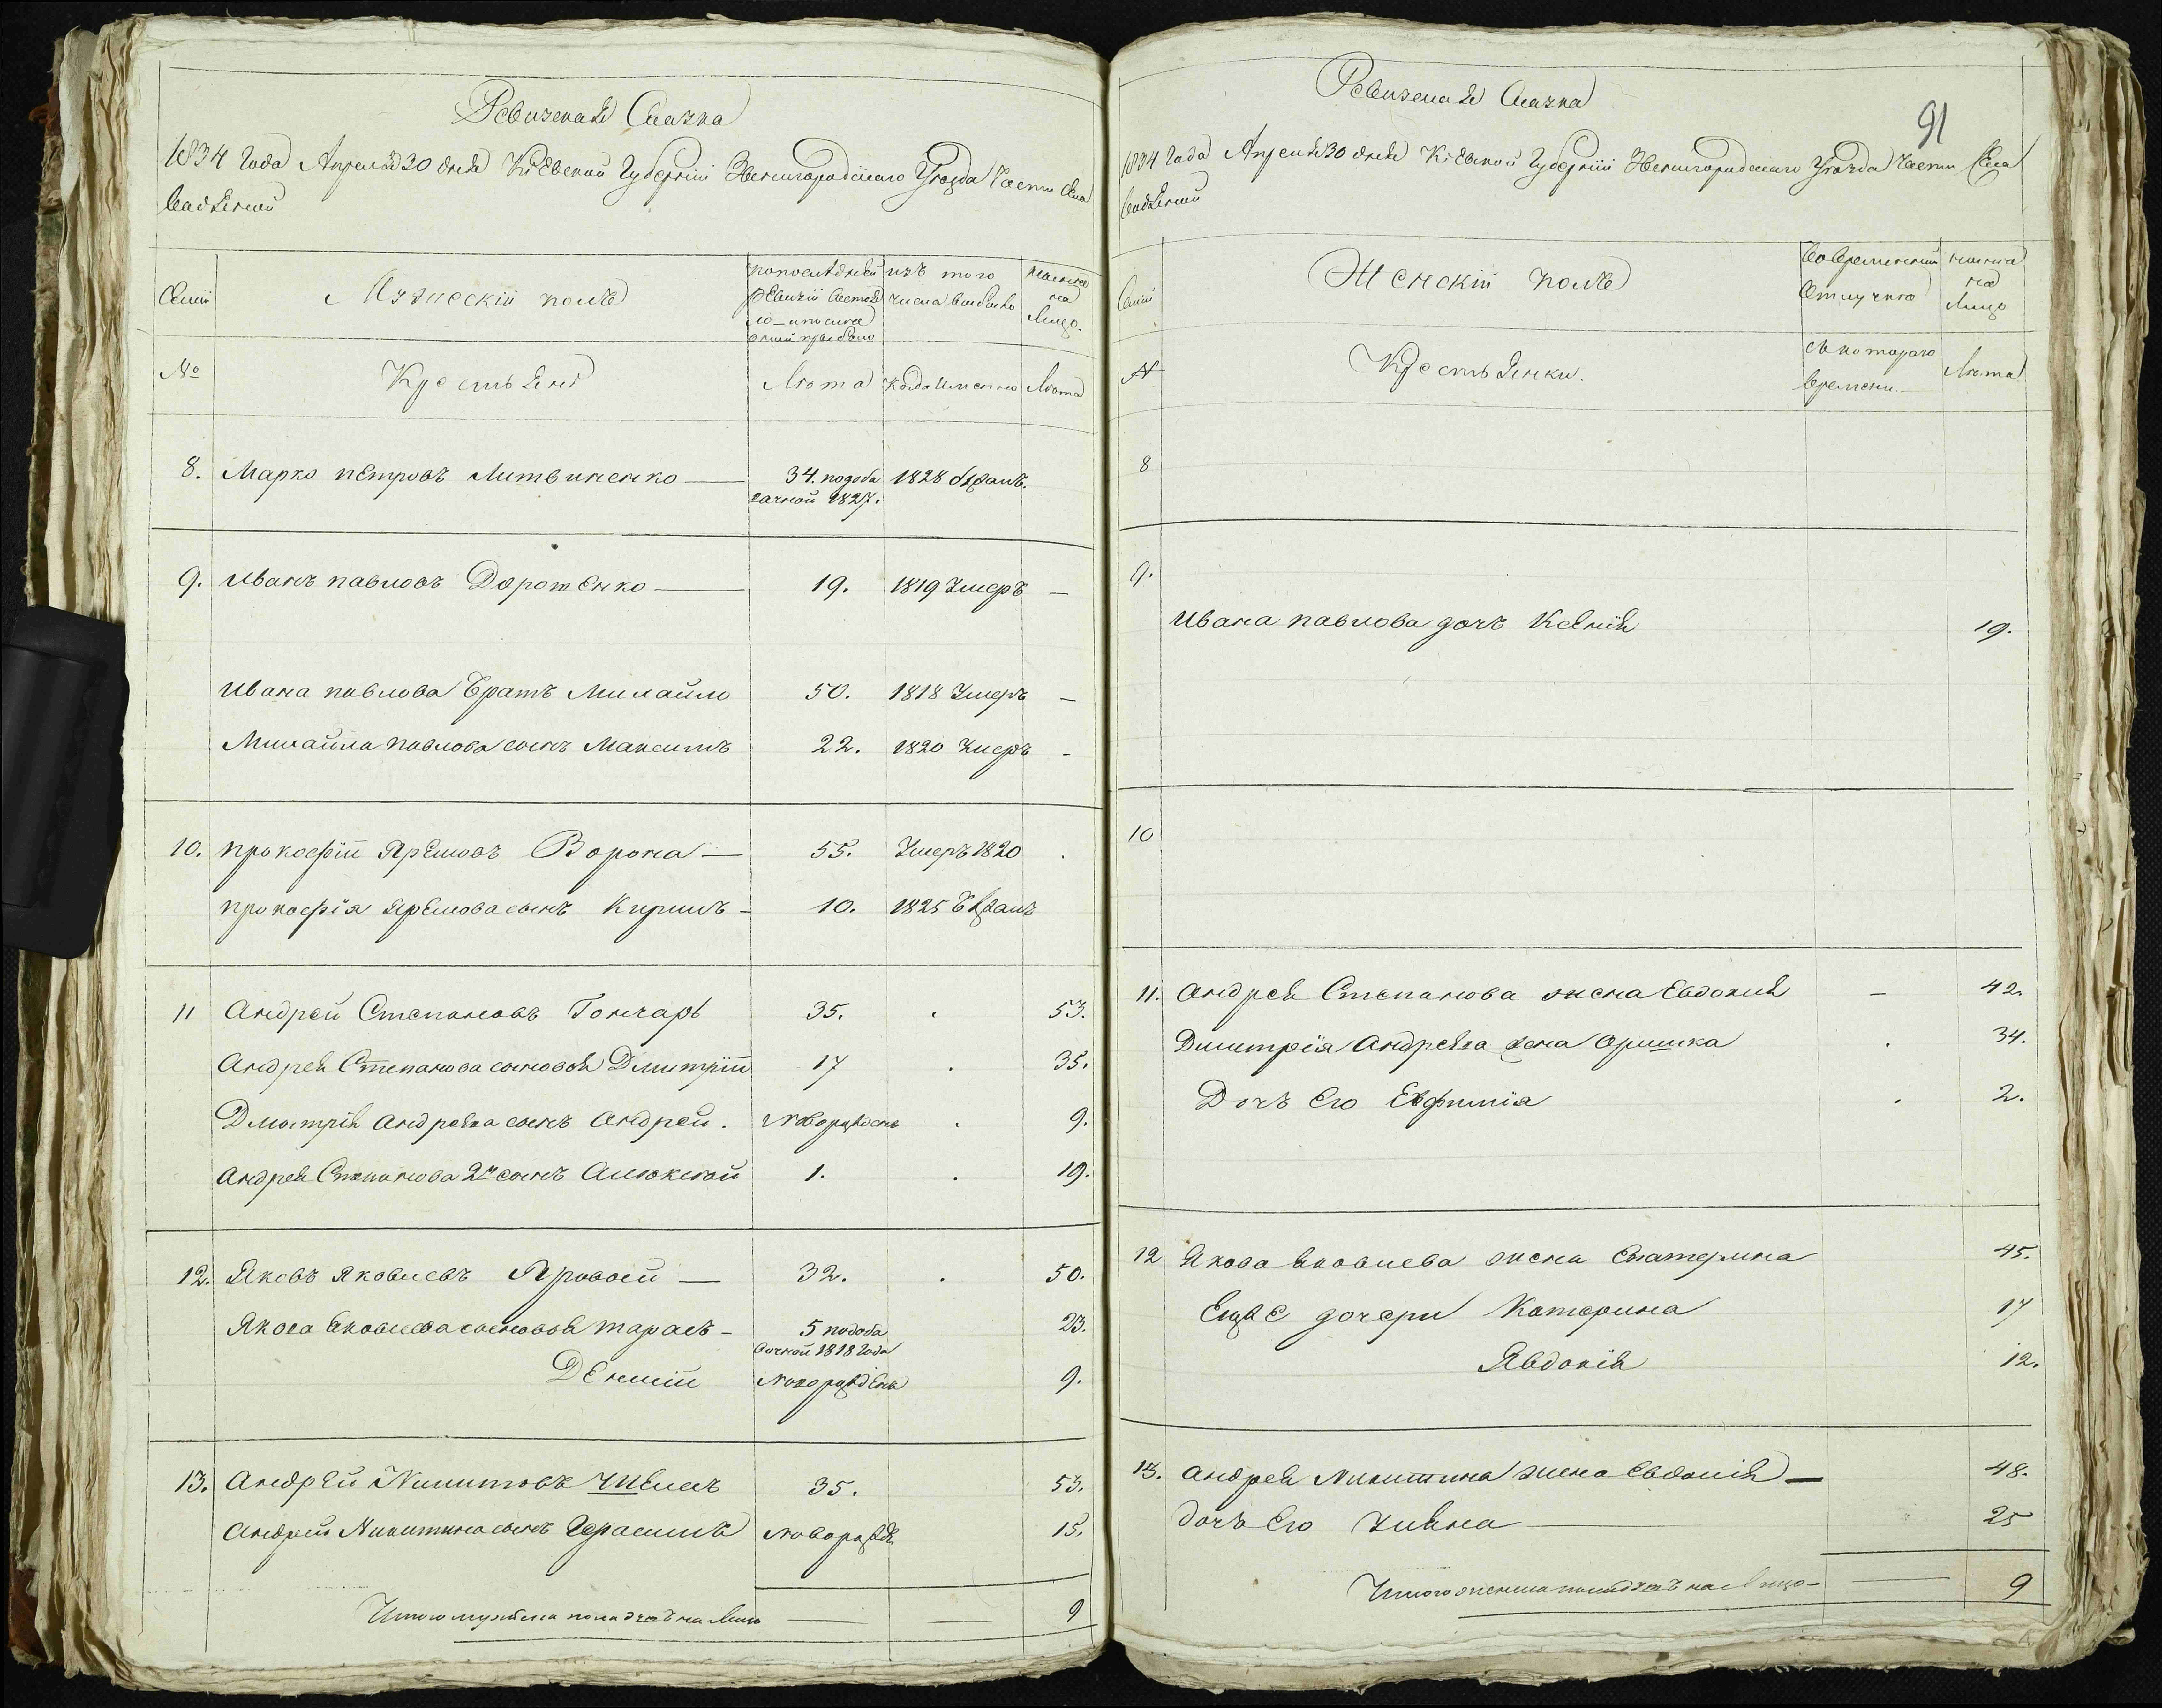 Ревизская Сказка
1834 Года Апреля 30 дня Кіевской Губерніи Звенигородскаго Уезда Части Села
Семьи
Мужескій полъ
по последней ревизіи состояло и после оной прибыло
изъ того числа выбыло
ныне на Лицо.
№
Крестьяне
Лета
Когда именно
Лета
8. Марко петровъ Литвиненко — 34. по добавочной 1827. 1828 бежалъ.
9. Иванъ павловъ Дорошенко — 19. 1819 Умеръ —
Ивана павлова братъ Михайло 50. 1818 Умеръ —
Михайла павлова сынъ Максимъ 22. 1820 Умеръ -
10. прокофій Яремовъ Ворона — 55. Умеръ 1820
прокофія Яремова сынъ Кирилъ - 10. 1825 Бежалъ
11 Андрей Степановъ Гончаръ 35. 53.
Андрея Степанова сыновья Дмитрій 17 35.
Дмитрія Андреева сынъ Андрей. Новорожденъ 9.
Андрея Степанова 2й сынъ Алексей 1. 19.
12. Яковъ Яковлевъ Яровой — 32. 50.
Якова Яковлева сыновья тарасъ - 5 по добавочной 1818 года 23.
Новорожденъ 9.
13. Андрей Никитовъ 35. 53.
Андрея Никитина сынъ Герасимъ Новорожде 15.
Итого мужеска пола душъ на Лицо — — 9
Ревизская Сказка
91
1834 Года Апреля 30 дня Кіевской Губерніи Звенигородскаго Уезда Части Села
Семьи
Женскій полъ
Во временной отлучке
ныне на Лицо
№
Крестьянки.
съ котораго времени.
Лета
8
9.
Ивана павлова дочь Ксенія 19.
10
11. Андрея Степанова жена Евдокия — 42.
Дмитрія Андреева жена Оришка 34.
Дочь Его Евфимія 2.
12 Якова Яковлева жена Екатерина 45.
Еще дочери Катерина 17
Явдокія 12.
13. Андрея Никитина жена Евдокія — 48.
дочь Его Ульяна — 25
Итого женска пола душъ на Лицо — — 9